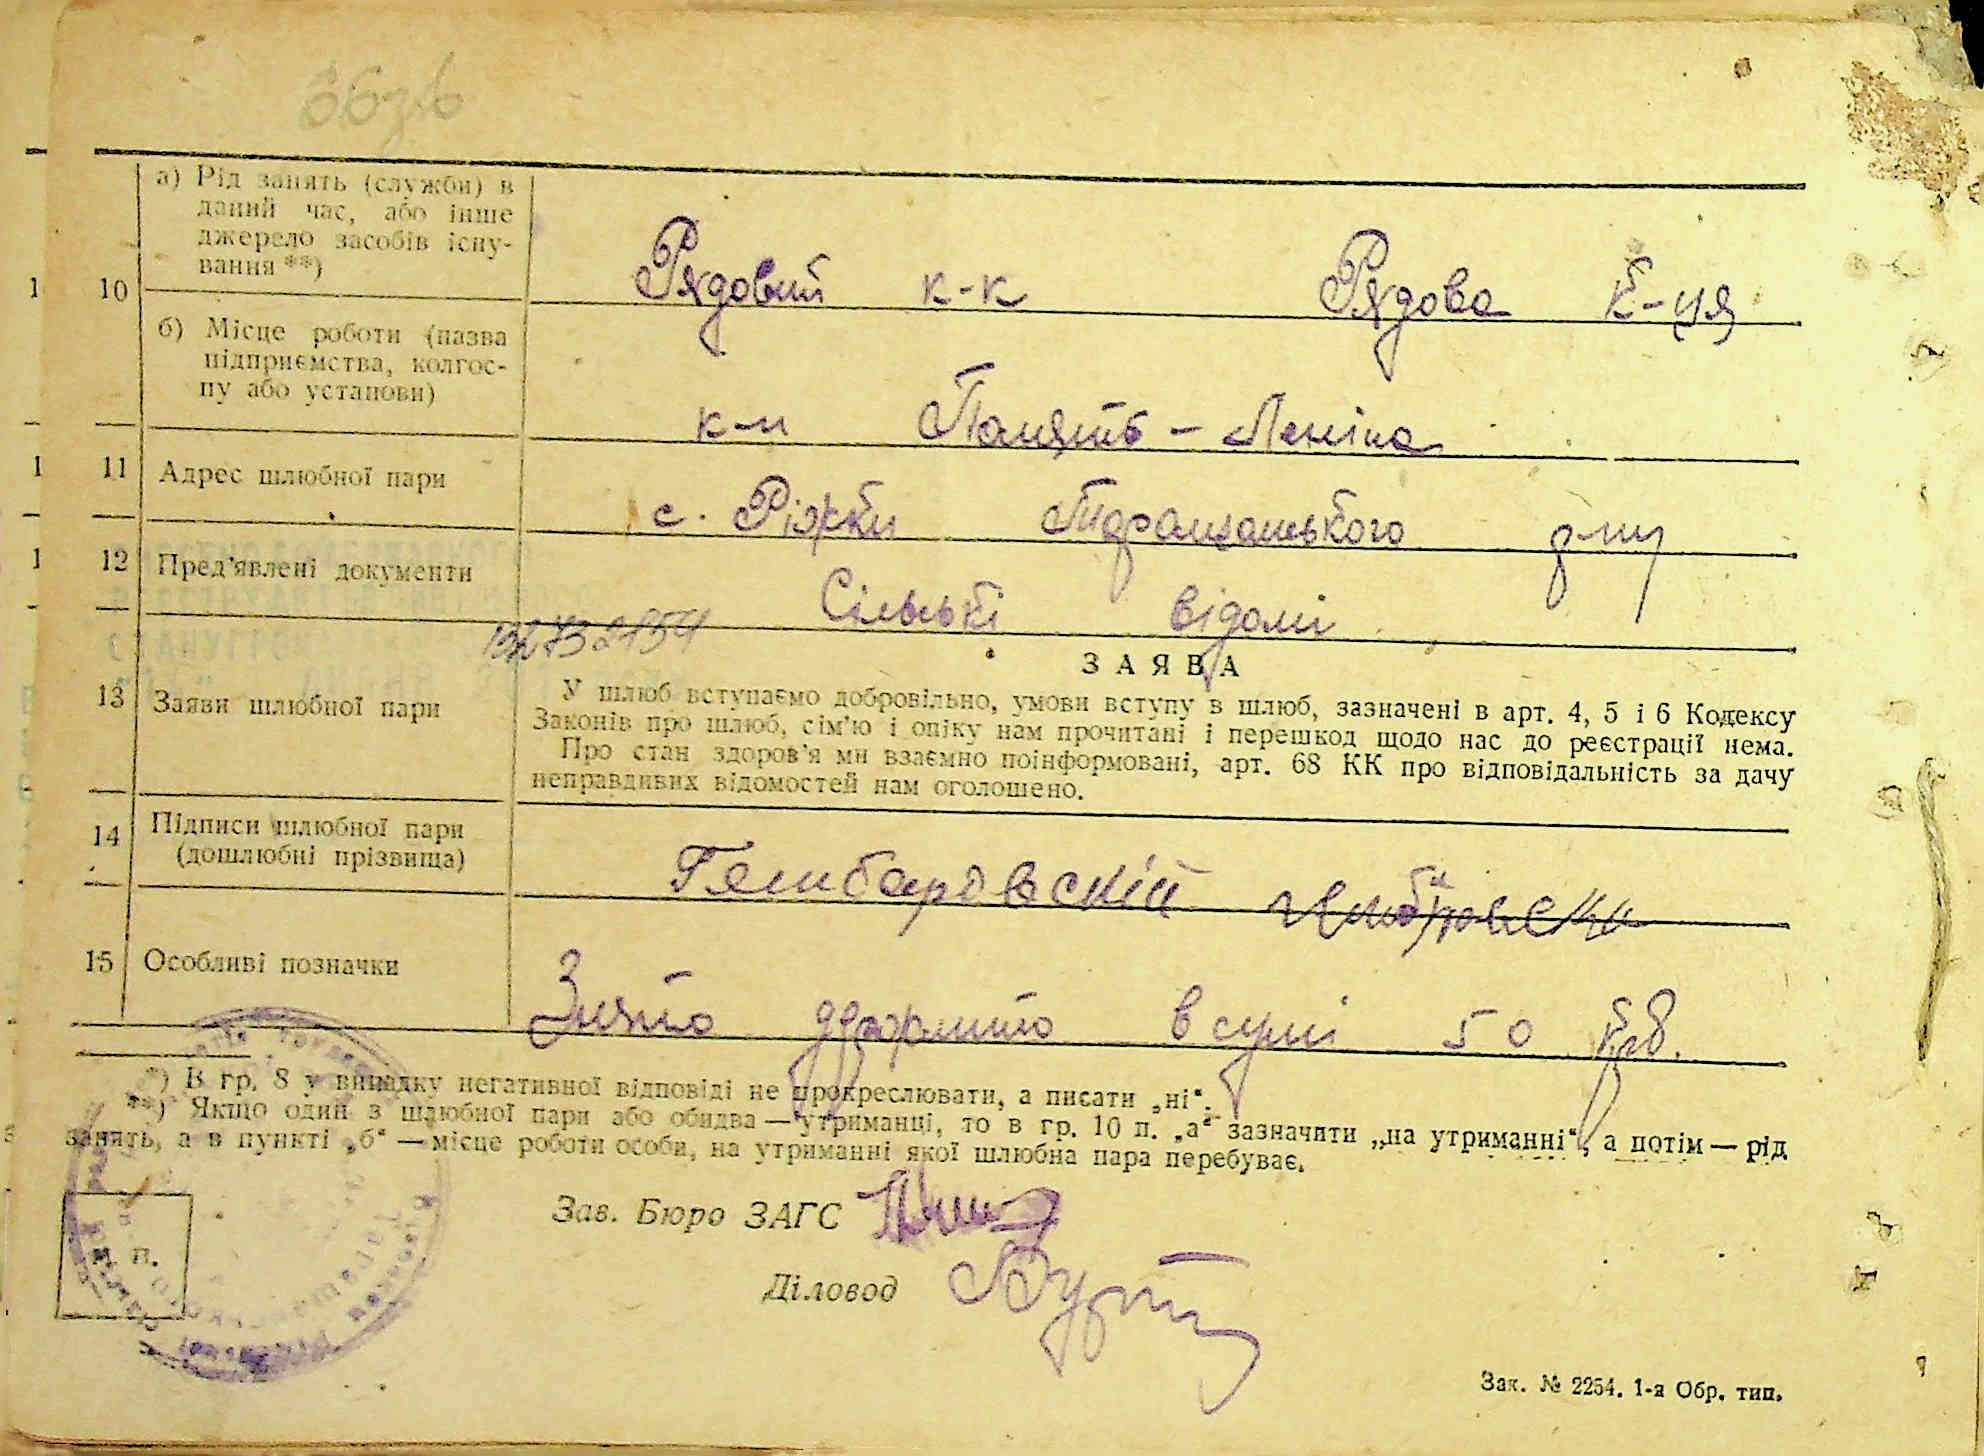 10
а) Рід занять (служби) в
даний час, або інше
джерело засобів існу-
вання **)
Рядовий к-к Рядова к-ця
б) Місце роботи (назва
підприємства, колгос-
пу або установи)
к-п Память - Леніна
11 Адрес шлюбної пари
с. Ріжки Таращанського р-ну
12 Пред’явлені документи
Сільські відомі
13 Заяви шлюбної пари
ЗАЯВА
У шлюб вступаємо добровільно, умови вступу в шлюб, зазначені в арт. 4, 5 і 6 Кодексу
Законів про шлюб, сім’ю і опіку нам прочитані і перешкод щодо нас до реєстрації нема.
Про стан здоров’я ми взаємно поінформовані, арт. 68 КК про відповідальність за дачу
неправдивих відомостей нам оголошено.
14 Підписи шлюбної пари
(дошлюбні прізвища)
15 Особливі позначки
Знято держмито в сумі 50 крб.
*) В гр. 8 у випадку негативної відповіді не прокреслювати, а писати „ні“.
**) Якщо один з шлюбної пари або обидва — утриманці, то в гр. 10 п. „а“ зазначити „на утриманні“, а потім — рід
занять, а в пункті „б“ — місце роботи особи, на утриманні якої шлюбна пара перебуває.
Зав. Бюро ЗАГС
Діловод
м. п.
Зак. № 2254. 1-я Обр. тип.